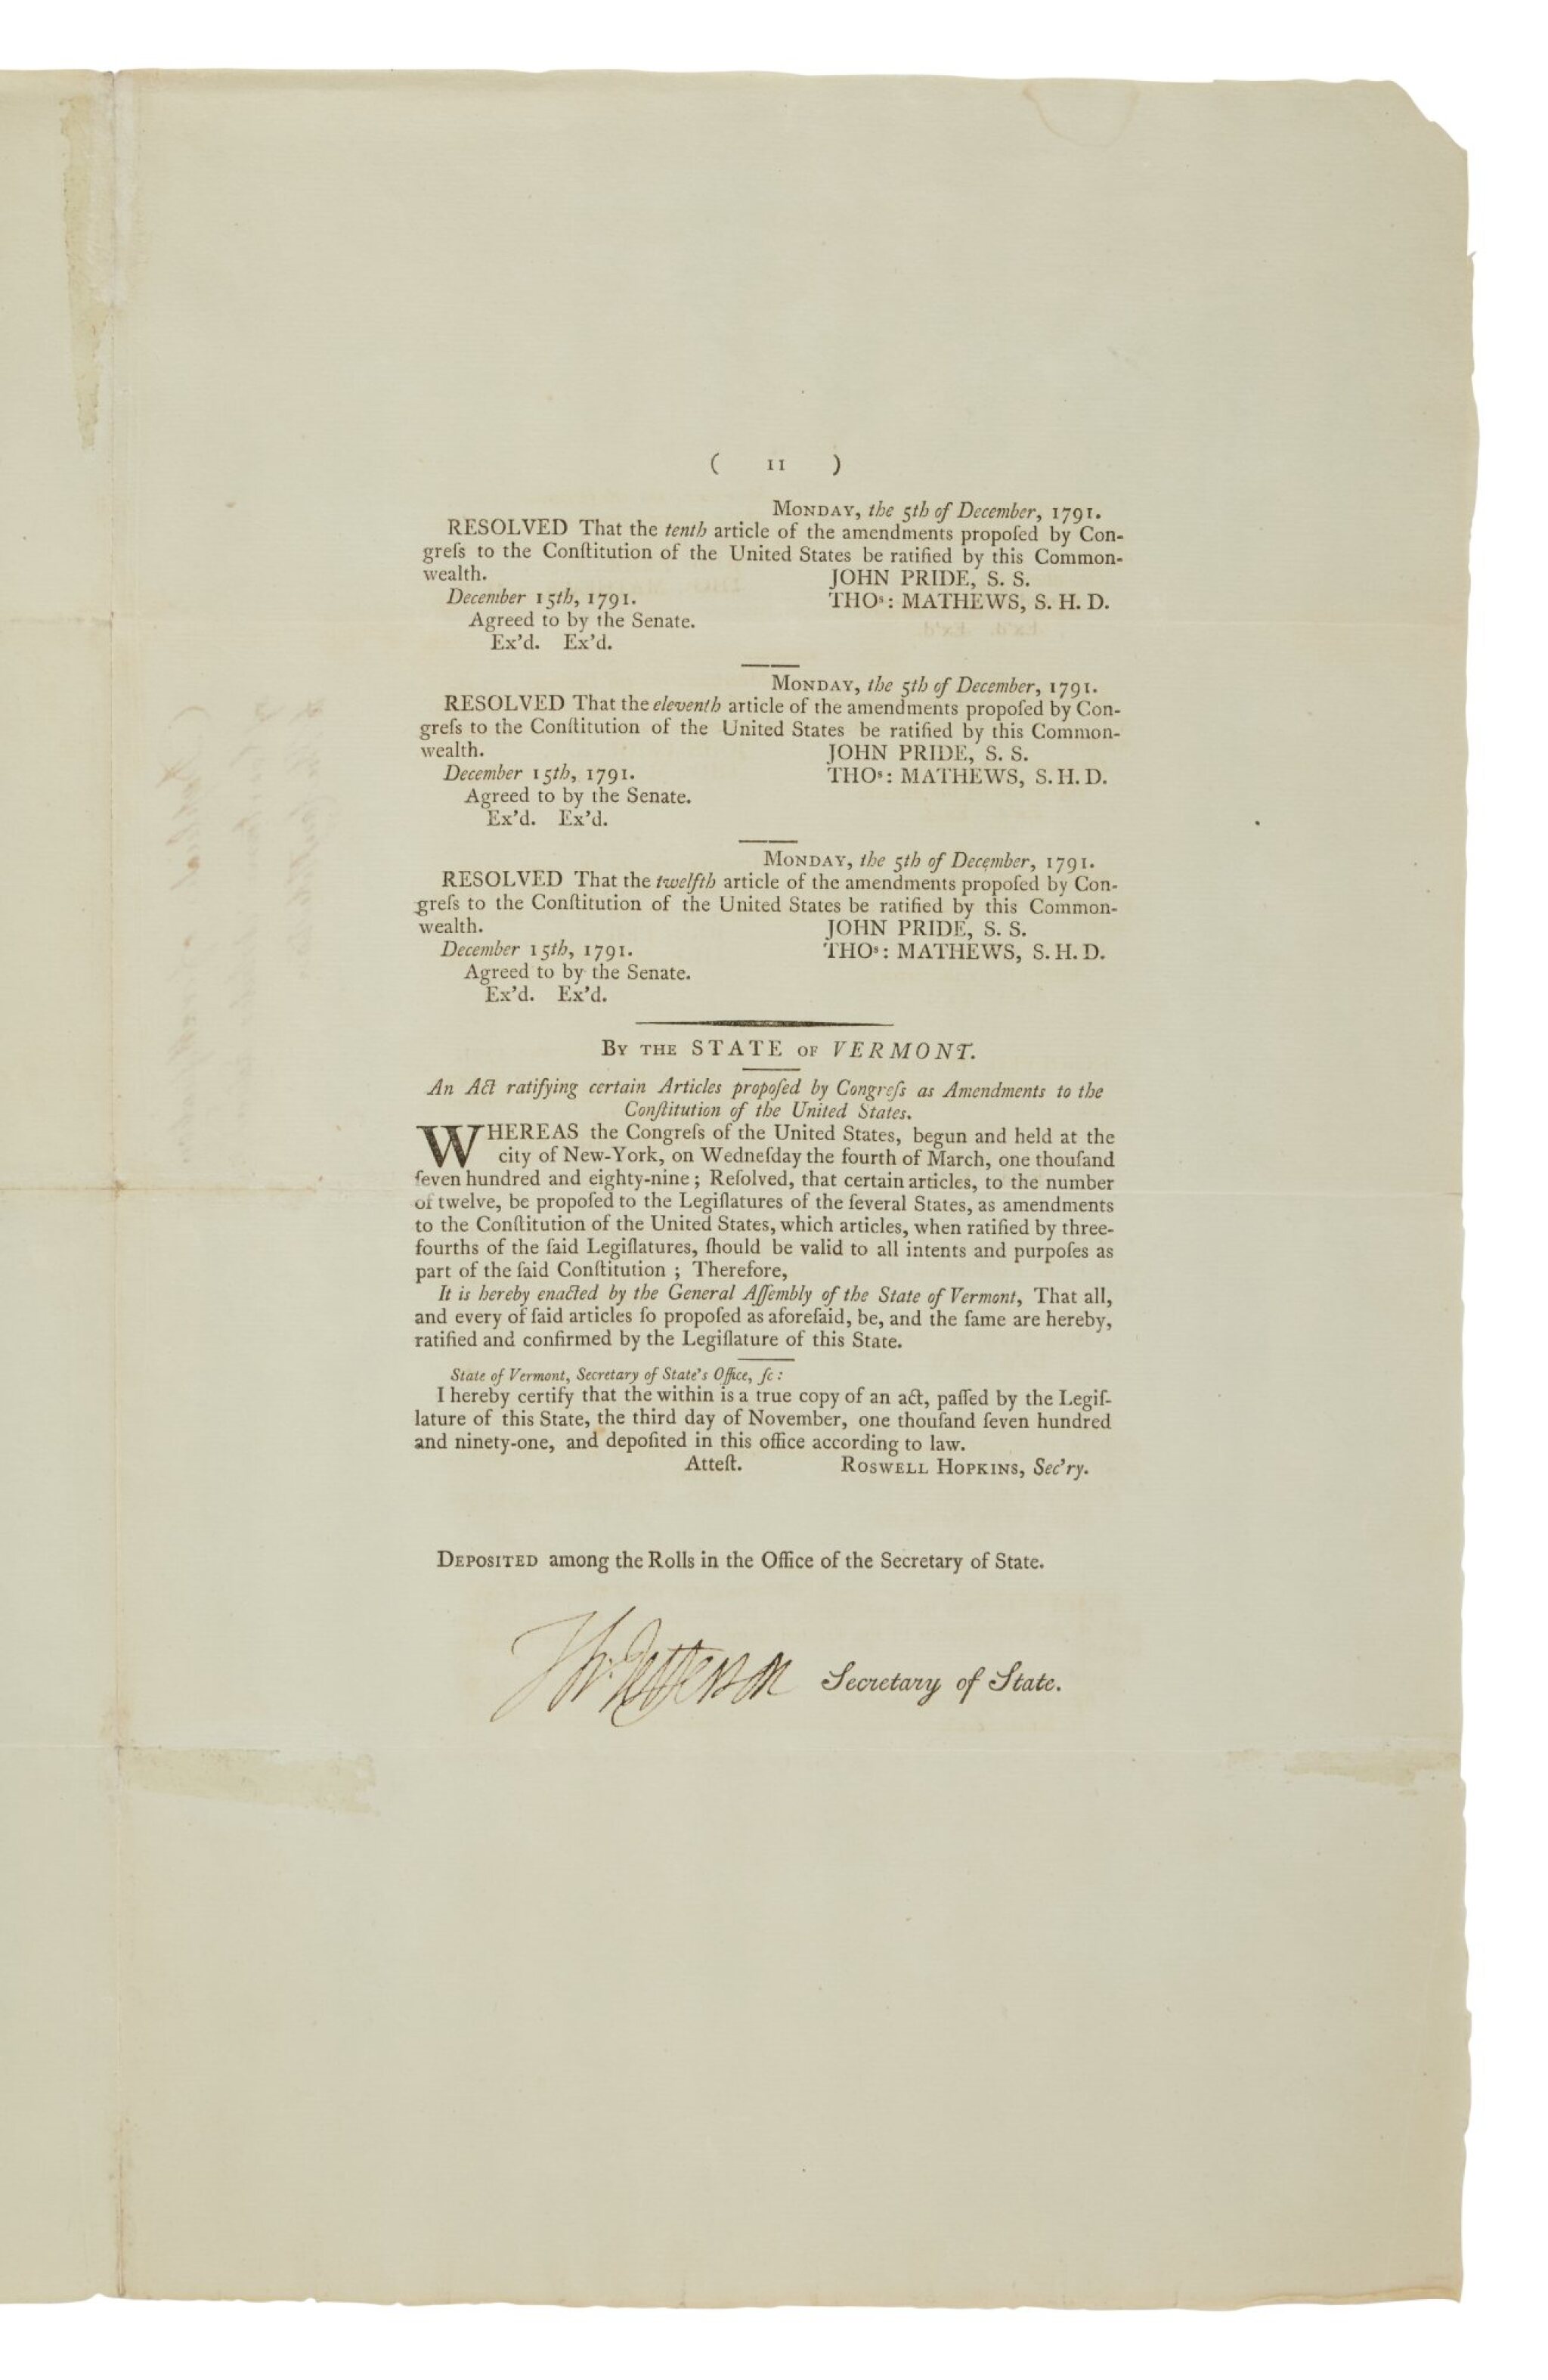 ( 11 )
MONDAY, the 5th of December, 1791.
RESOLVED That the tenth article of the amendments propoſed by Con-
greſs to the Conſtitution of the United States be ratified by this Common-
wealth. JOHN PRIDE, S. S.
December 15th, 1791. THOˢ: MATHEWS, S. H. D.
Agreed to by the Senate.
Ex'd. Ex'd.
MONDAY, the 5th of December, 1791.
RESOLVED That the eleventh article of the amendments propoſed by Con-
greſs to the Conſtitution of the United States be ratified by this Common-
wealth. JOHN PRIDE, S. S.
December 15th, 1791. THOˢ: MATHEWS, S. H. D.
Agreed to by the Senate.
Ex'd. Ex'd.
MONDAY, the 5th of December, 1791.
RESOLVED That the twelfth article of the amendments propoſed by Con-
greſs to the Conſtitution of the United States be ratified by this Common-
wealth. JOHN PRIDE, S. S.
December 15th, 1791. THOˢ: MATHEWS, S. H. D.
Agreed to by the Senate.
Ex'd. Ex'd.
BY THE STATE OF VERMONT.
An Act ratifying certain Articles propoſed by Congreſs as Amendments to the
Conſtitution of the United States.
WHEREAS the Congreſs of the United States, begun and held at the
city of New-York, on Wedneſday the fourth of March, one thouſand
ſeven hundred and eighty-nine; Reſolved, that certain articles, to the number
of twelve, be propoſed to the Legiſlatures of the ſeveral States, as amendments
to the Conſtitution of the United States, which articles, when ratified by three-
fourths of the ſaid Legiſlatures, ſhould be valid to all intents and purpoſes as
part of the ſaid Conſtitution; Therefore,
It is hereby enacted by the General Aſſembly of the State of Vermont, That all,
and every of ſaid articles ſo propoſed as aforeſaid, be, and the ſame are hereby,
ratified and confirmed by the Legiſlature of this State.
State of Vermont, Secretary of State's Office, ſc:
I hereby certify that the within is a true copy of an act, paſſed by the Legiſ-
lature of this State, the third day of November, one thouſand ſeven hundred
and ninety-one, and depoſited in this office according to law.
Atteſt. ROSWELL HOPKINS, Sec'ry.
DEPOSITED among the Rolls in the Office of the Secretary of State.
Th: Jefferson Secretary of State.